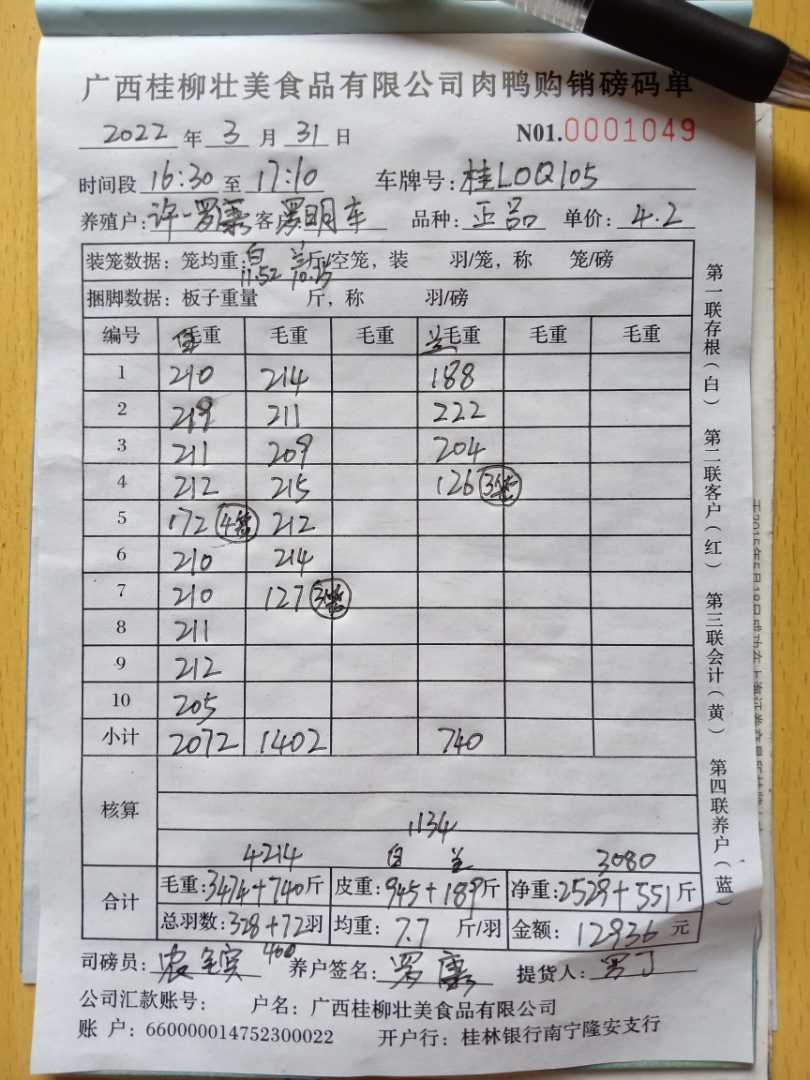 广西桂柳壮美食品有限公司肉鸭购销磅码单
2022 年 3 月 31 日 N01.0001049
时间段 16:30 至 17:10 车牌号: 桂L0Q105
养殖户: 许一罗康 客户: 罗明车 品种: 正品 单价: 4.2
装笼数据: 笼均重: 白 兰 斤/空笼, 装 羽/笼, 称 笼/磅
11.52
捆脚数据: 板子重量 斤, 称 羽/磅
编号 白毛重 毛重 毛重 兰毛重 毛重 毛重
1 210 214 188
2 219 211 222
3 211 209 204
4 212 215 126 3笼
5 172 4笼 212
6 210 214
7 210 127 3笼
8 211
9 212
10 205
小计 2072 1402 740
核算
1134
4214 白 兰 3080
合计
毛重: 3474+740 斤 皮重: 945+189 斤 净重: 2529+551 斤
总羽数: 328+72 羽 均重: 7.7 斤/羽 金额: 12936 元
400
司磅员: 养户签名: 罗康 提货人: 罗丁
公司汇款账号: 户名: 广西桂柳壮美食品有限公司
账 户: 660000014752300022 开户行: 桂林银行南宁隆安支行
第一联存根(白) 第二联客户(红) 第三联会计(黄) 第四联养户(蓝)